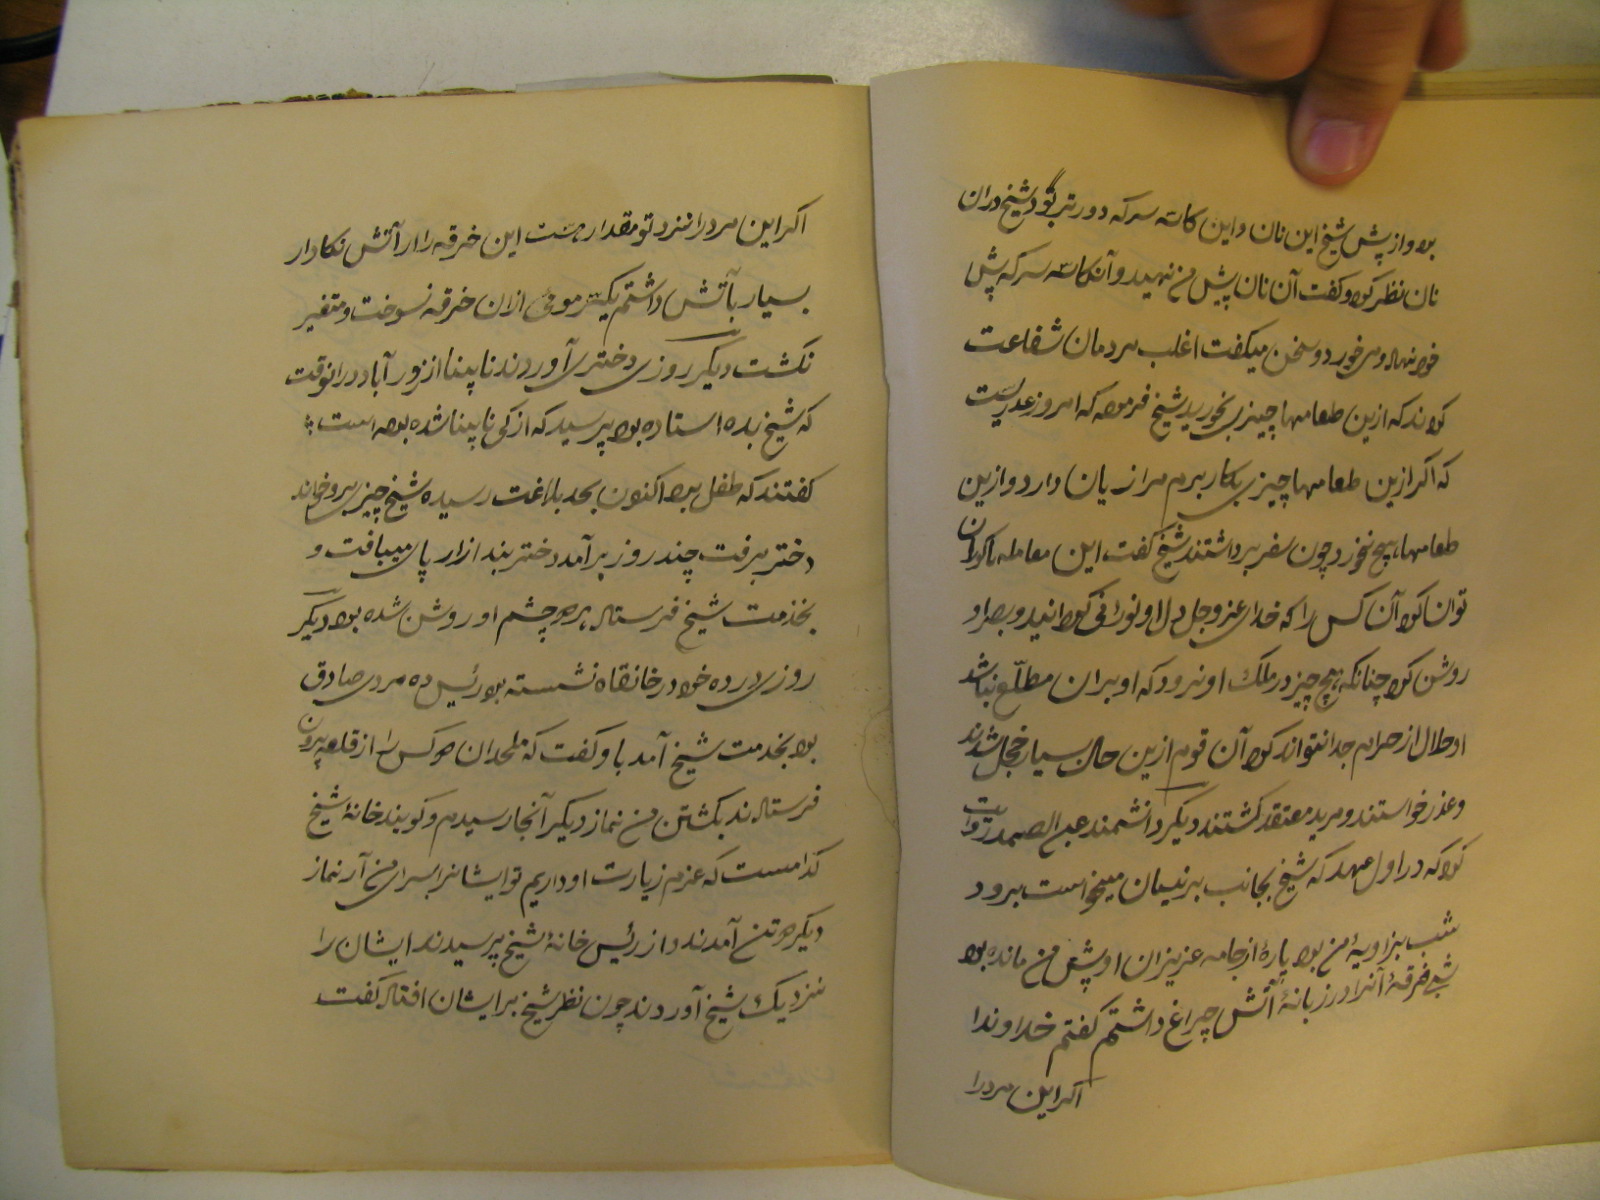 بود و از پیش شیخ این نان و این کاسه سرکه دورتر بود شیخ دران
نان نظر کرد و کفت آن نان پیش من نهید و آن کاسه سرکه پیش
خود نهاد و می خورد و سخن میکفت اغلب مردمان شفاعت
کردند که ازین طعامها چیزی بخورید شیخ فرمود که امروز عذریست
که اکر ازین طعامها چیزی بکار برم مرا زیان دارد و ازین
طعامها هیچ نخورد چون سفره برداشتند شیخ کفت این معامله با کوران
توان کرد آن کس را که خدای عز و جل دل او نورانی کردانید و بصر او
روشن کرد چنانکه هیچ چیز در ملک او نرود که او بران مطلّع نباشد
او حلال از حرام جدا نتواند کرد آن قوم ازین حال بسیار خجل شدند
و عذر خواستند و مرید معتقد کشتند دیکر دانشمند عبد الصمد روایت
کرد که در اول عهد که شیخ بجانب میخواست برود
شب بزاویهٔ من بود پارهٔ از جامه عزیزان او پیش من مانده بود
شبی خرقهٔ آنرا در زبانهٔ آتش چراغ داشتم کفتم خداوندا
اکر این مرد را
اکر این مرد را نزد تو مقداری هست این خرقه را از آتش نکاه دار
بسیار بآتش داشتم یکسر موی ازان خرقه نسوخت و متغیر
نکشت دیکر روزی دختری آوردند نابینا از زورآباد درانوقت
که شیخ بده استاده بود پرسید که از کی نابینا شده بوده است
کفتند که طفل بود اکنون بحد بلاغت رسیده شیخ چیزی برو خواند
دختر برفت چند روز برآمد دختر بند ازار پای میبافت و
بخدمت شیخ فرستاد هر دو چشم او روشن شده بود دیکر
روزی در ده خود در خانقاه نشسته بود رئیس ده مردی صادق
بود بخدمت شیخ آمد با او کفت که ملحدان دو کس را از قلعه بیرون
فرستادند بکشتن من نماز دیکر آنجا رسیدم و کویند خانهٔ شیخ
کدامست که عزم زیارت او داریم تو ایشانرا بسرای من آر نماز
دیکر دو تن آمدند و از رئیس خانهٔ شیخ پرسیدند ایشان را
نزدیک شیخ آوردند چون نظر شیخ بر ایشان افتاد کفت